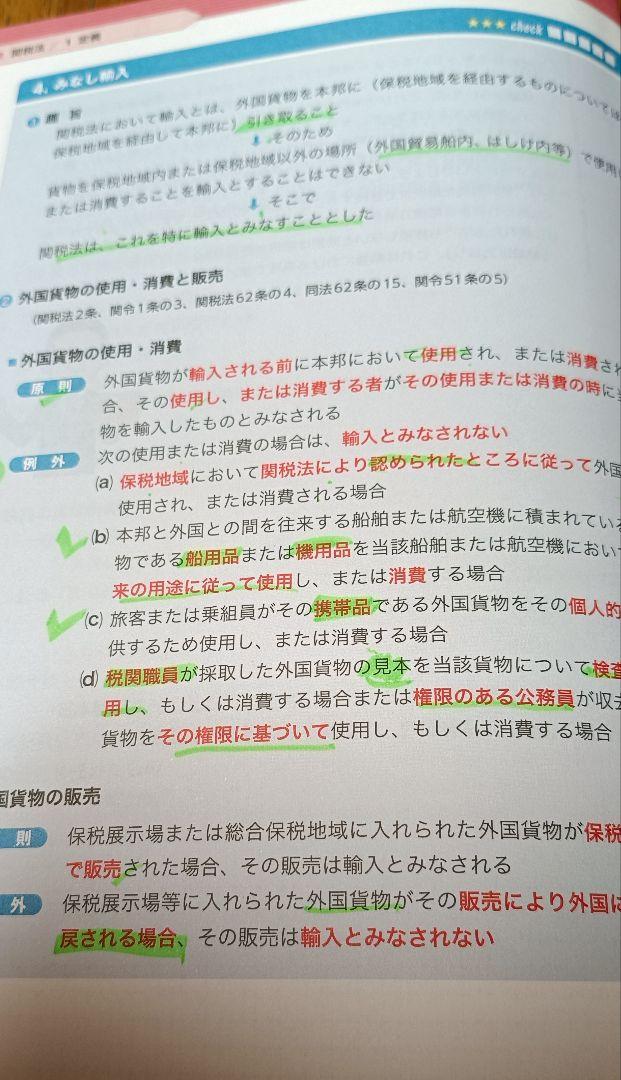 関税法 / 1 定義
★★★ check
4. みなし輸入
❶ 趣 旨
関税法において輸入とは、外国貨物を本邦に（保税地域を経由するものについては
保税地域を経由して本邦に）引き取ること
⬇ そのため
貨物を保税地域内または保税地域以外の場所（外国貿易船内、はしけ内等）で使用
または消費することを輸入とすることはできない
⬇ そこで
関税法は、これを特に輸入とみなすこととした
❷ 外国貨物の使用・消費と販売
(関税法2条、関令1条の3、関税法62条の4、同法62条の15、関令51条の5)
■ 外国貨物の使用・消費
原 則 外国貨物が輸入される前に本邦において使用され、または消費され
合、その使用し、または消費する者がその使用または消費の時に
物を輸入したものとみなされる
例 外 次の使用または消費の場合は、輸入とみなされない
(a) 保税地域において関税法により認められたところに従って外国
使用され、または消費される場合
(b) 本邦と外国との間を往来する船舶または航空機に積まれてい
物である船用品または機用品を当該船舶または航空機におい
来の用途に従って使用し、または消費する場合
(c) 旅客または乗組員がその携帯品である外国貨物をその個人的
供するため使用し、または消費する場合
(d) 税関職員が採取した外国貨物の見本を当該貨物について検査
用し、もしくは消費する場合または権限のある公務員が収去
貨物をその権限に基づいて使用し、もしくは消費する場合
国貨物の販売
則 保税展示場または総合保税地域に入れられた外国貨物が保税
で販売された場合、その販売は輸入とみなされる
外 保税展示場等に入れられた外国貨物がその販売により外国に
戻される場合、その販売は輸入とみなされない